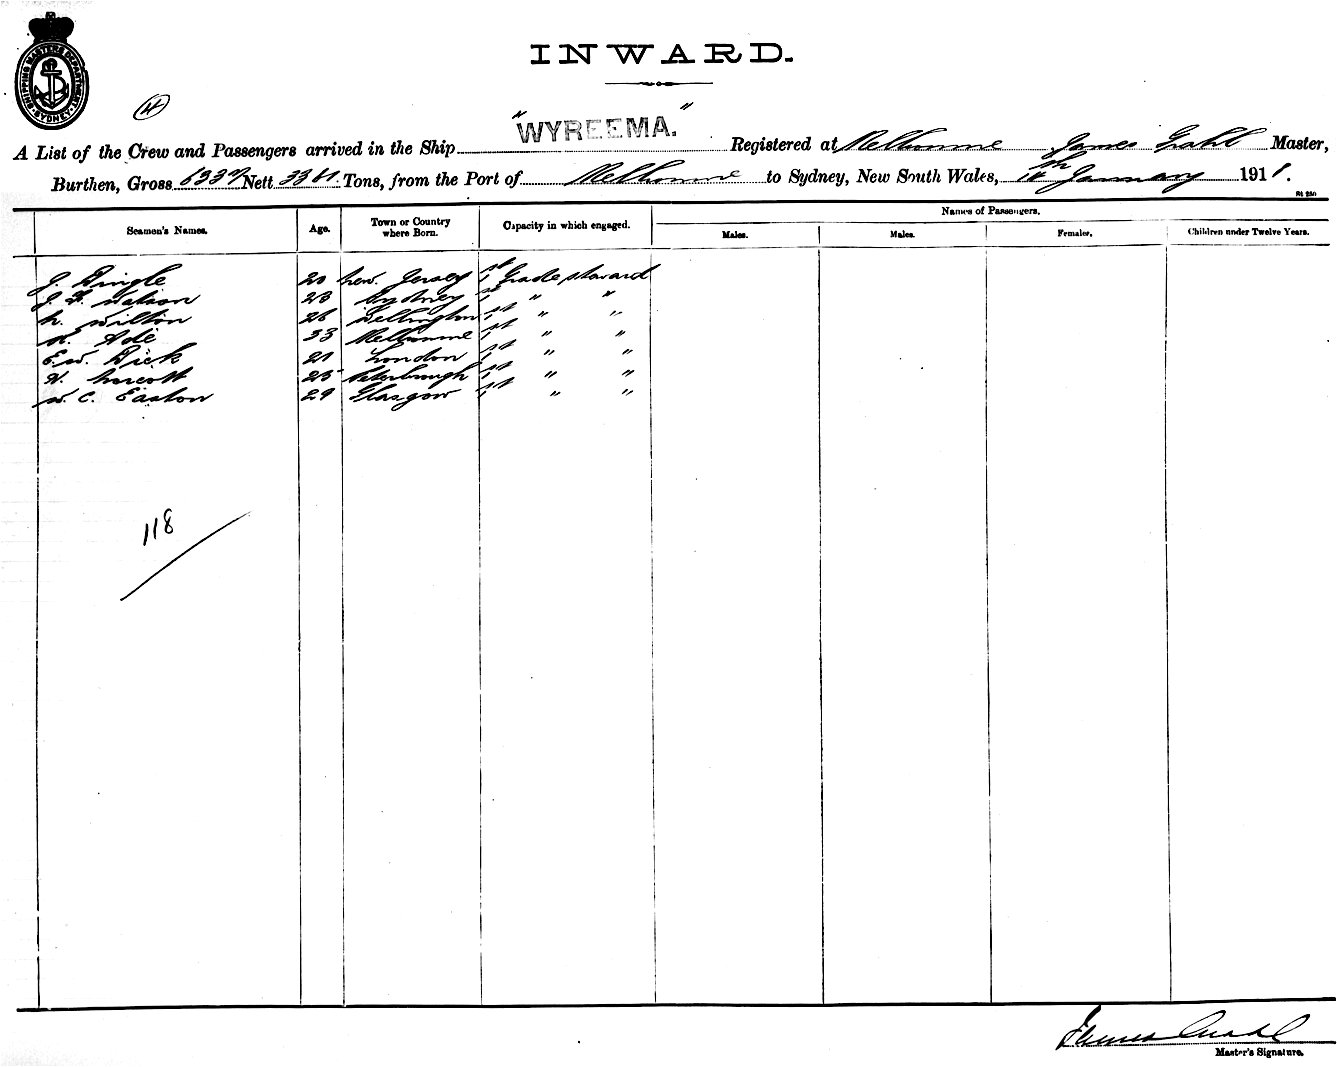 SHIPPING MASTERS DEPARTMENT SYDNEY
INWARD.
(4)
A List of the Crew and Passengers arrived in the Ship "WYREEMA." Registered at Melbourne James Grahl Master,
Burthen, Gross 6337 Nett 3361 Tons, from the Port of Melbourne to Sydney, New South Wales, January 1911.
Seamen's Names. Age. Town or Country where Born. Capacity in which engaged. Names of Passengers.
Males. Males. Females. Children under Twelve Years.
J. Dingle 20 New Jersey 1st Grade steward
J. Watson 23 Sydney 1st " "
N. Wilton 26 Wellington 1st " "
Ade 33 Melbourne 1st " "
E. W. Dick 21 London 1st " "
H. Norcott 25 Peterbrough 1st " "
W. C. Easton 29 Glasgow 1st " "
118
James Grahl
Master's Signature.